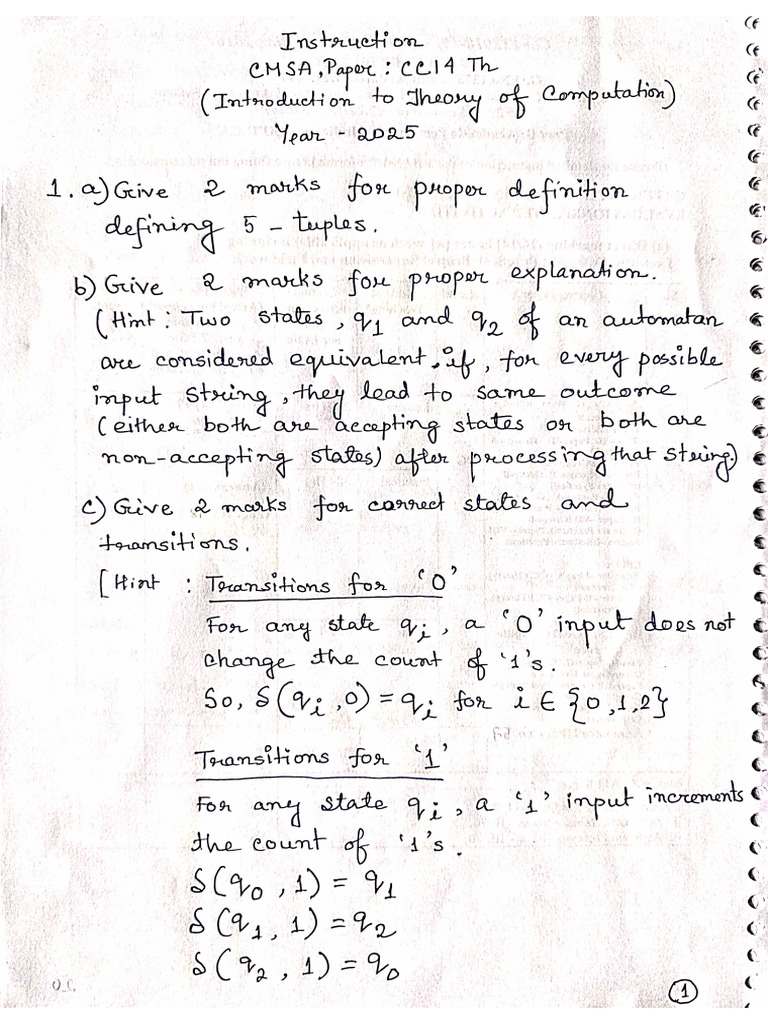 Instruction
CMSA, Paper: CC14 Th
(Introduction to Theory of Computation)
Year - 2025
1. a) Give 2 marks for proper definition
defining 5 - tuples.
b) Give 2 marks for proper explanation.
(Hint: Two states, q1 and q2 of an automatan
are considered equivalent, if, for every possible
input string, they lead to same outcome
(either both are accepting states or both are
non-accepting states) after processing that string.)
c) Give 2 marks for correct states and
transitions.
[Hint : Transitions for '0'
For any state qi, a '0' input does not
change the count of '1's.
So, δ(qi, 0) = qi for i ∈ {0,1,2}
Transitions for '1'
For any state qi, a '1' input increments
the count of '1's.
δ(q0, 1) = q1
δ(q1, 1) = q2
δ(q2, 1) = q0
1